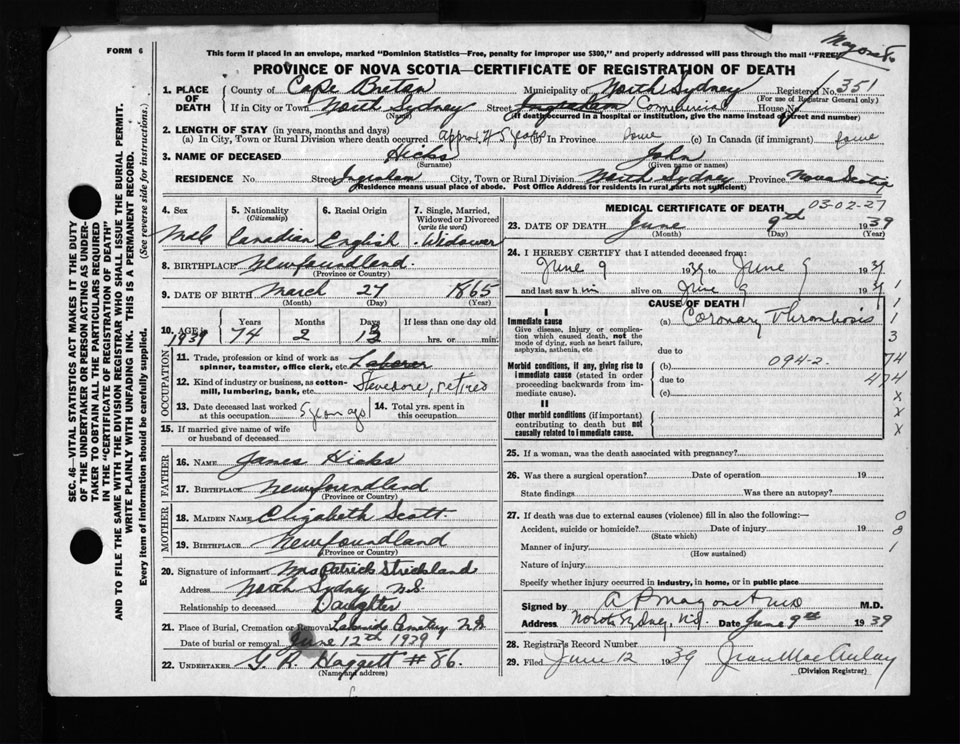 FORM 6
This form if placed in an envelope, marked "Dominion Statistics—Free, penalty for improper use $300," and properly addressed will pass through the mail "FREE"
PROVINCE OF NOVA SCOTIA—CERTIFICATE OF REGISTRATION OF DEATH
1. PLACE OF DEATH County of Cape Breton Municipality of North Sydney Registered No. 351
(For use of Registrar General only)
If in City or Town North Sydney Street Ingraham Commercial House No.
(Name) (If death occurred in a hospital or institution, give the name instead of street and number)
2. LENGTH OF STAY (in years, months and days)
(a) In City, Town or Rural Division where death occurred approx 45 years (b) In Province (c) In Canada (if immigrant)
3. NAME OF DECEASED Hicks John
(Surname) (Given name or names)
RESIDENCE No. Street Ingraham City, Town or Rural Division North Sydney Province Nova Scotia
(Residence means usual place of abode. Post Office Address for residents in rural parts not sufficient)
4. Sex 5. Nationality (Citizenship) 6. Racial Origin 7. Single, Married, Widowed or Divorced (write the word)
Male Canadian English Widower
8. BIRTHPLACE Newfoundland.
(Province or Country)
9. DATE OF BIRTH March 27 1865
(Month) (Day) (Year)
10. AGE Years Months Days If less than one day old
1939 74 2 13 hrs. or min.
OCCUPATION
11. Trade, profession or kind of work as spinner, teamster, office clerk, etc. Laborer
12. Kind of industry or business, as cotton-mill, lumbering, bank, etc. Stevedore, retired
13. Date deceased last worked at this occupation 5 years ago 14. Total yrs. spent in this occupation
15. If married give name of wife or husband of deceased
FATHER
16. NAME James Hicks
17. BIRTHPLACE Newfoundland
(Province or Country)
MOTHER
18. MAIDEN NAME Elizabeth Scott.
19. BIRTHPLACE Newfoundland
(Province or Country)
20. Signature of informant Mrs Patrick Strickland
Address North Sydney N.S.
Relationship to deceased Daughter
21. Place of Burial, Cremation or Removal Lakeside Cemetery N.S
Date of burial or removal June 12th 1939
22. UNDERTAKER #86.
(Name and address)
MEDICAL CERTIFICATE OF DEATH 03-02-27
23. DATE OF DEATH June 9th 1939
(Month) (Day) (Year)
24. I HEREBY CERTIFY that I attended deceased from:
June 9 1939 to June 9 1939
and last saw him alive on June 9 1939
CAUSE OF DEATH
I
Immediate cause (a) Coronary Thrombosis
Give disease, injury or complication which caused death, not the mode of dying, such as heart failure, asphyxia, asthenia, etc.
due to
Morbid conditions, if any, giving rise to immediate cause (stated in order proceeding backwards from immediate cause).
(b) 094-2.
due to
(c)
II
Other morbid conditions (if important) contributing to death but not causally related to immediate cause.
1
1
3
74
474
x
x
x
25. If a woman, was the death associated with pregnancy?
26. Was there a surgical operation? Date of operation 19
State findings Was there an autopsy?
27. If death was due to external causes (violence) fill in also the following:—
Accident, suicide or homicide? Date of injury 19
(State which)
Manner of injury
(How sustained)
Nature of injury
Specify whether injury occurred in industry, in home, or in public place
0
8
1
Signed by M.D.
Address North Sydney, N.S. Date June 9th 1939
28. Registrar's Record Number
29. Filed June 12 1939 Jean MacAulay
(Division Registrar)
SEC. 46—VITAL STATISTICS ACT MAKES IT THE DUTY OF THE UNDERTAKER OR PERSON ACTING AS UNDERTAKER TO OBTAIN ALL THE PARTICULARS REQUIRED IN THE "CERTIFICATE OF REGISTRATION OF DEATH"
AND TO FILE THE SAME WITH THE DIVISION REGISTRAR WHO SHALL ISSUE THE BURIAL PERMIT.
WRITE PLAINLY WITH UNFADING INK. THIS IS A PERMANENT RECORD.
Every item of information should be carefully supplied. (See reverse side for instructions.)